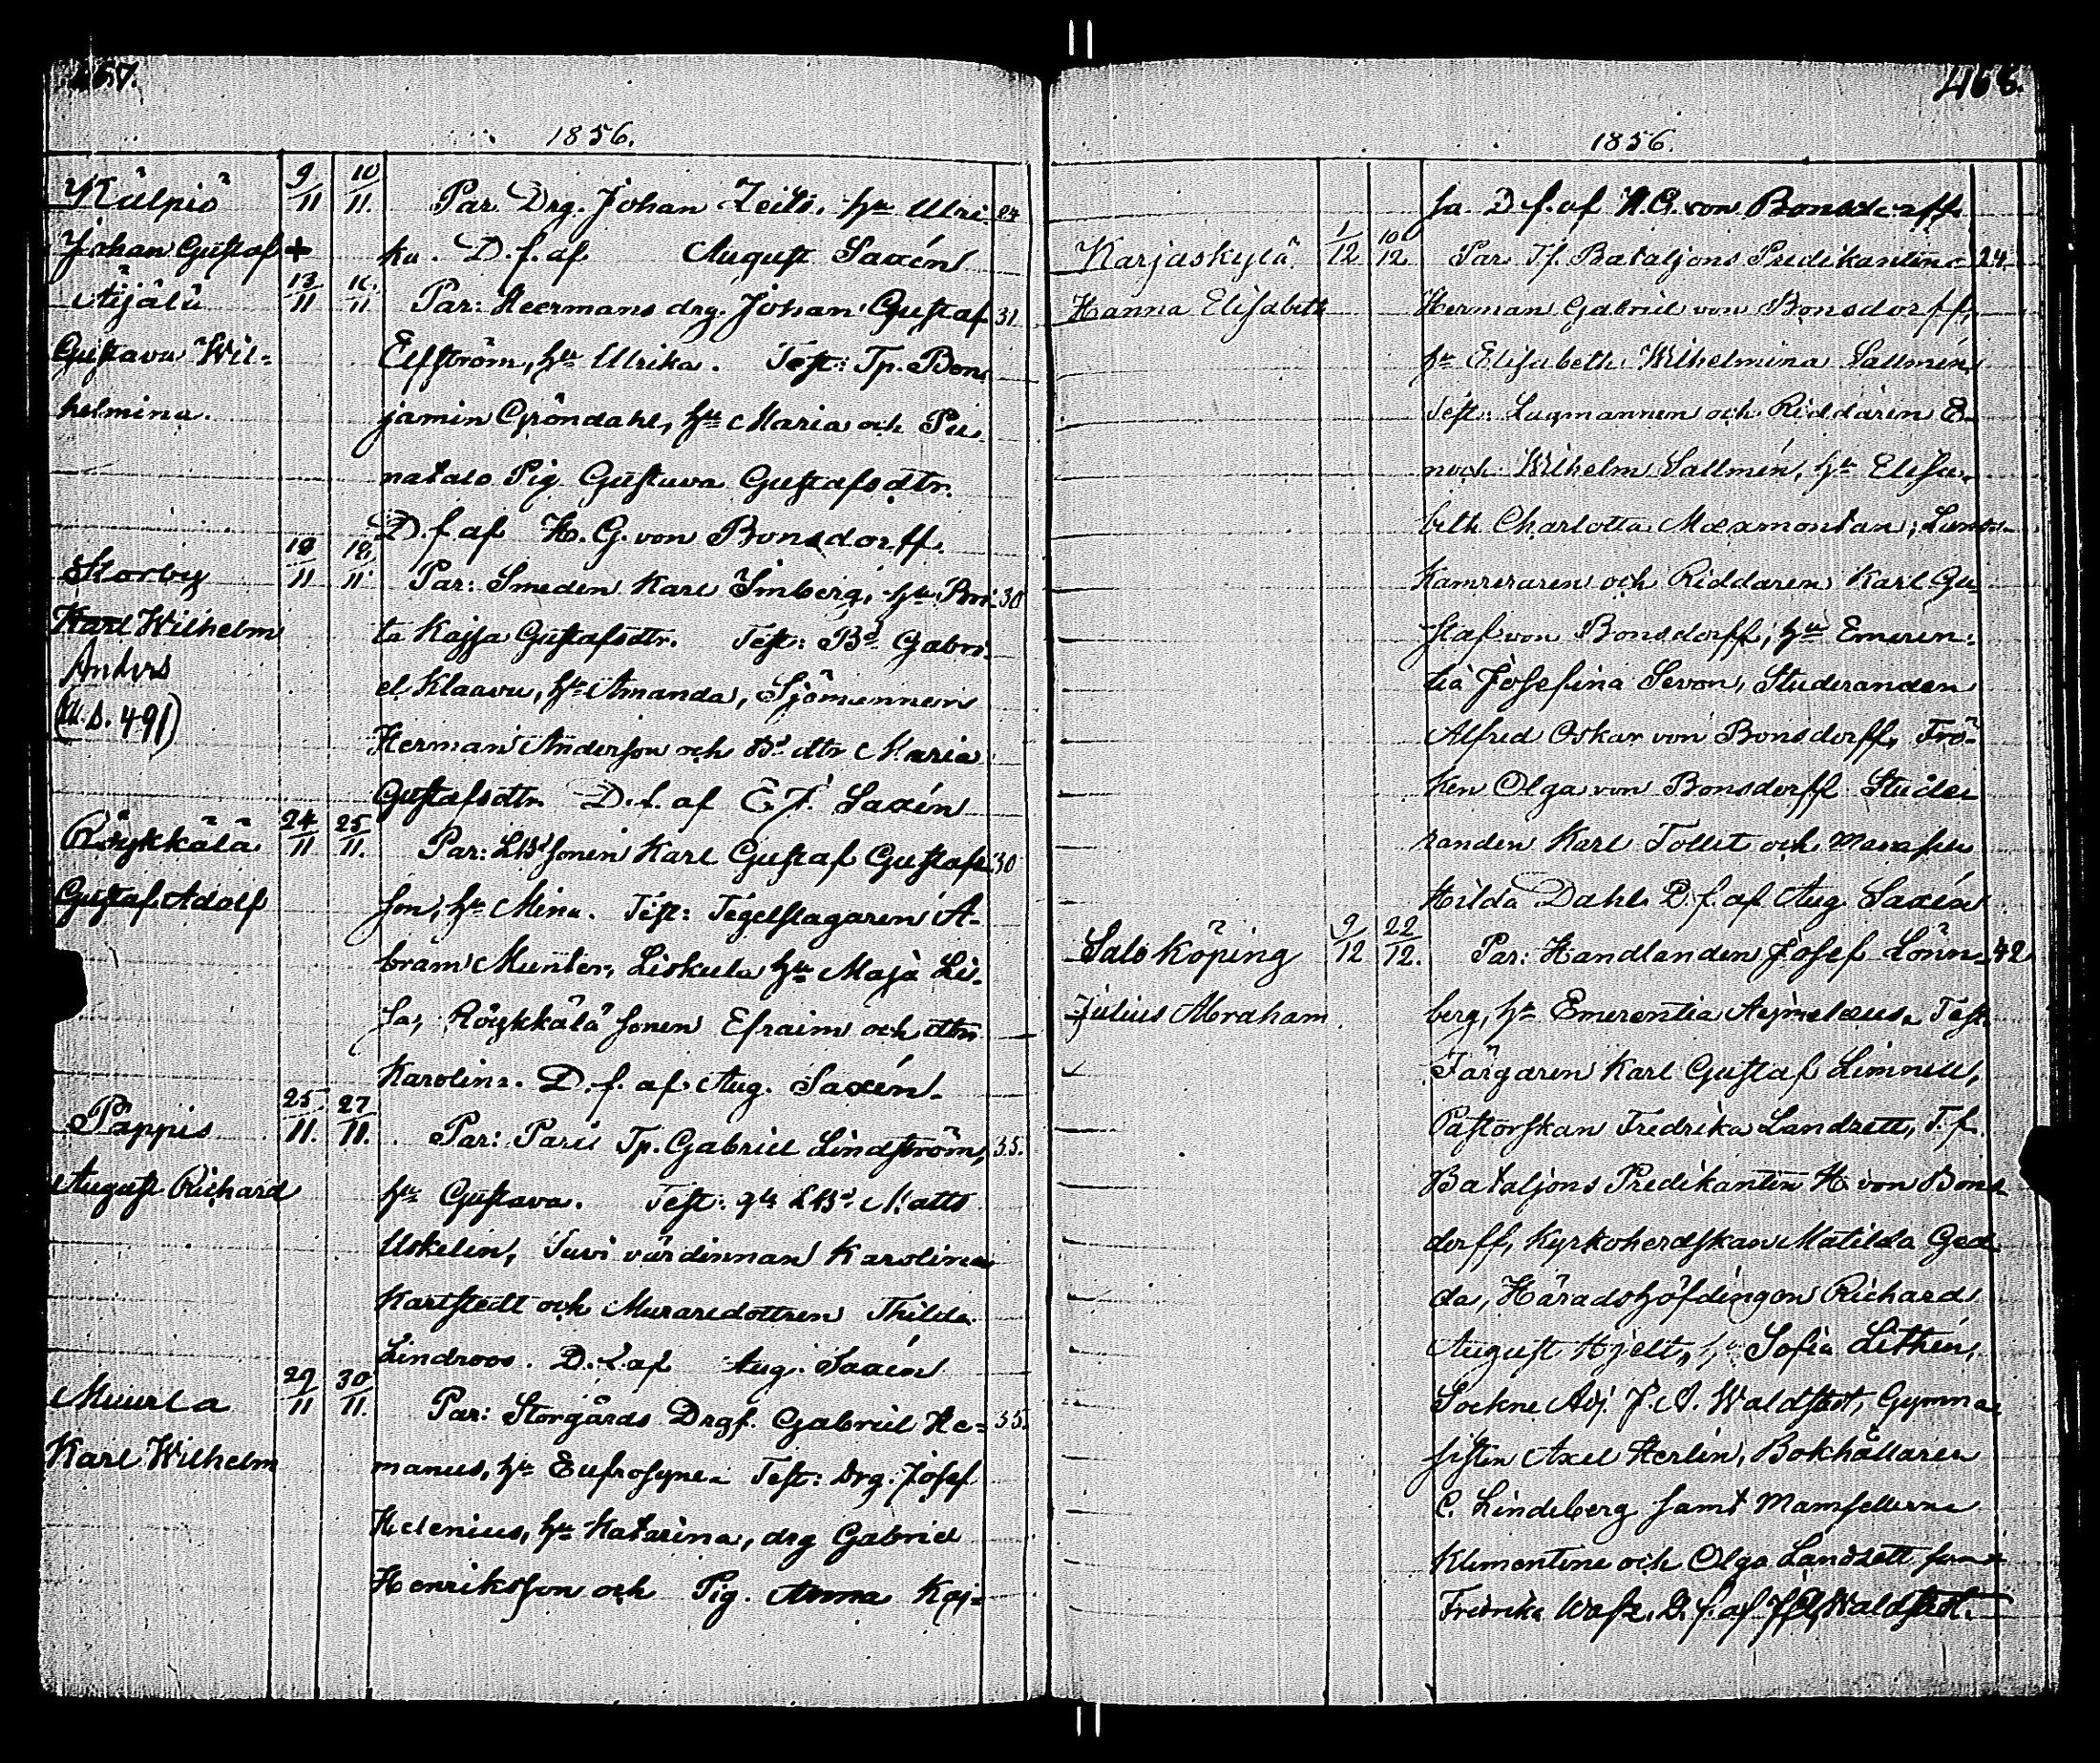 457.
1856.
Külpiö 9/11 10/11. Par. Drg. Johan Zeits, hu Ulri- 24
Johan Gustaf + ka. D. f. af August Saxén
Äijälä 13/11 16/11. Par: Heermans drg. Johan Gustaf 31
Gustava Wil- Elfström, hu Ulrika. Test: Tp. Ben-
helmina. jamin Gröndahl, hu Maria och Pu-
natalo Pig. Gustava Gustafsdtr.
D. f. af H. G. von Bonsdorff.
Korby 18/11 18/11. Par: Smeden Karl Imberg, hu Bri- 30
Karl Wilhelm ta Kajsa Gustafsdtr. Test: Bd Gabri-
Anders el Klaavu, hu Amanda, Sjömannen
(U. S. 491) Herman Anderson och Bd dtr Maria
Gustafsdtr. D. f. af E. J. Saxén
Röykkälä 24/11 25/11. Par: LBd sonen Karl Gustaf Gustafs- 30
Gustaf Adolf son, hu Mina. Test: Tegelslagaren A-
bram Munter, Liskula hu Maja Li-
sa, Röykkälä sonen Efraim och dtrn
Karolina. D. f. af Aug. Saxén.
Pappis 25/11. 27/11. Par: Paris Tp. Gabriel Lindström, 35.
August Richard hu Gustava. Test: gla LBd Matts
Uskelin, Suvi värdinnan Karolina
Kartstedt och Muraredottren Thilda
Lindroos. D. f. af Aug. Saxén
Muurla 29/11 30/11. Par: Storgårds Drgf. Gabriel He- 35.
Karl Wilhelm manus, hu Eufrosyne. Test: Drg. Josef
Helenius, hu Katarina, drg Gabriel
Henriksson och Pig. Anna Kaj-
458.
1856.
sa. D. f. af H. G. von Bonsdorff.
Karjaskylä 1/12 10/12 Par. T.f. Bataljons Predikanten 24.
Hanna Elisabeth Herman Gabriel von Bonsdorff,
hu Elisabeth Wilhelmina Sallmén.
Test: Lagmannen och Riddaren E-
noch Wilhelm Sallmén, hu Elisa-
beth Charlotta Maxmontan; Lands-
Kamreraren och Riddaren Karl Gu-
staf von Bonsdorff, hu Emeren-
tia Josefina Sevon, Studeranden
Alfred Oskar von Bonsdorff, Frö-
ken Olga von Bonsdorff Stude-
randen Karl Tollet och Mamsell
Hilda Dahl. D. f. af Aug. Saxén
Salo Köping 9/12 22/12. Par: Handlanden Josef Lönn- 42
Julius Abraham. berg, hu Emerentia Aejmelaeus. Test:
Färgaren Karl Gustaf Limnell,
Pastorskan Fredrika Landzett, T. f.
Bataljons Predikanten H. von Bons-
dorff, Kyrkoherdskan Matilda Ged-
da, Häradshöfdingen Richard
August Hjelt, hu Sofia Lithén,
Sockne Adj. J. A. Waldstedt, Gymna-
sisten Axel Herlin, Bokhållaren
C. Lindeberg samt Mamsellerna
Klementine och Olga Landzett samt
Fredrika Wasz. D. f. af J. A. Waldstedt.